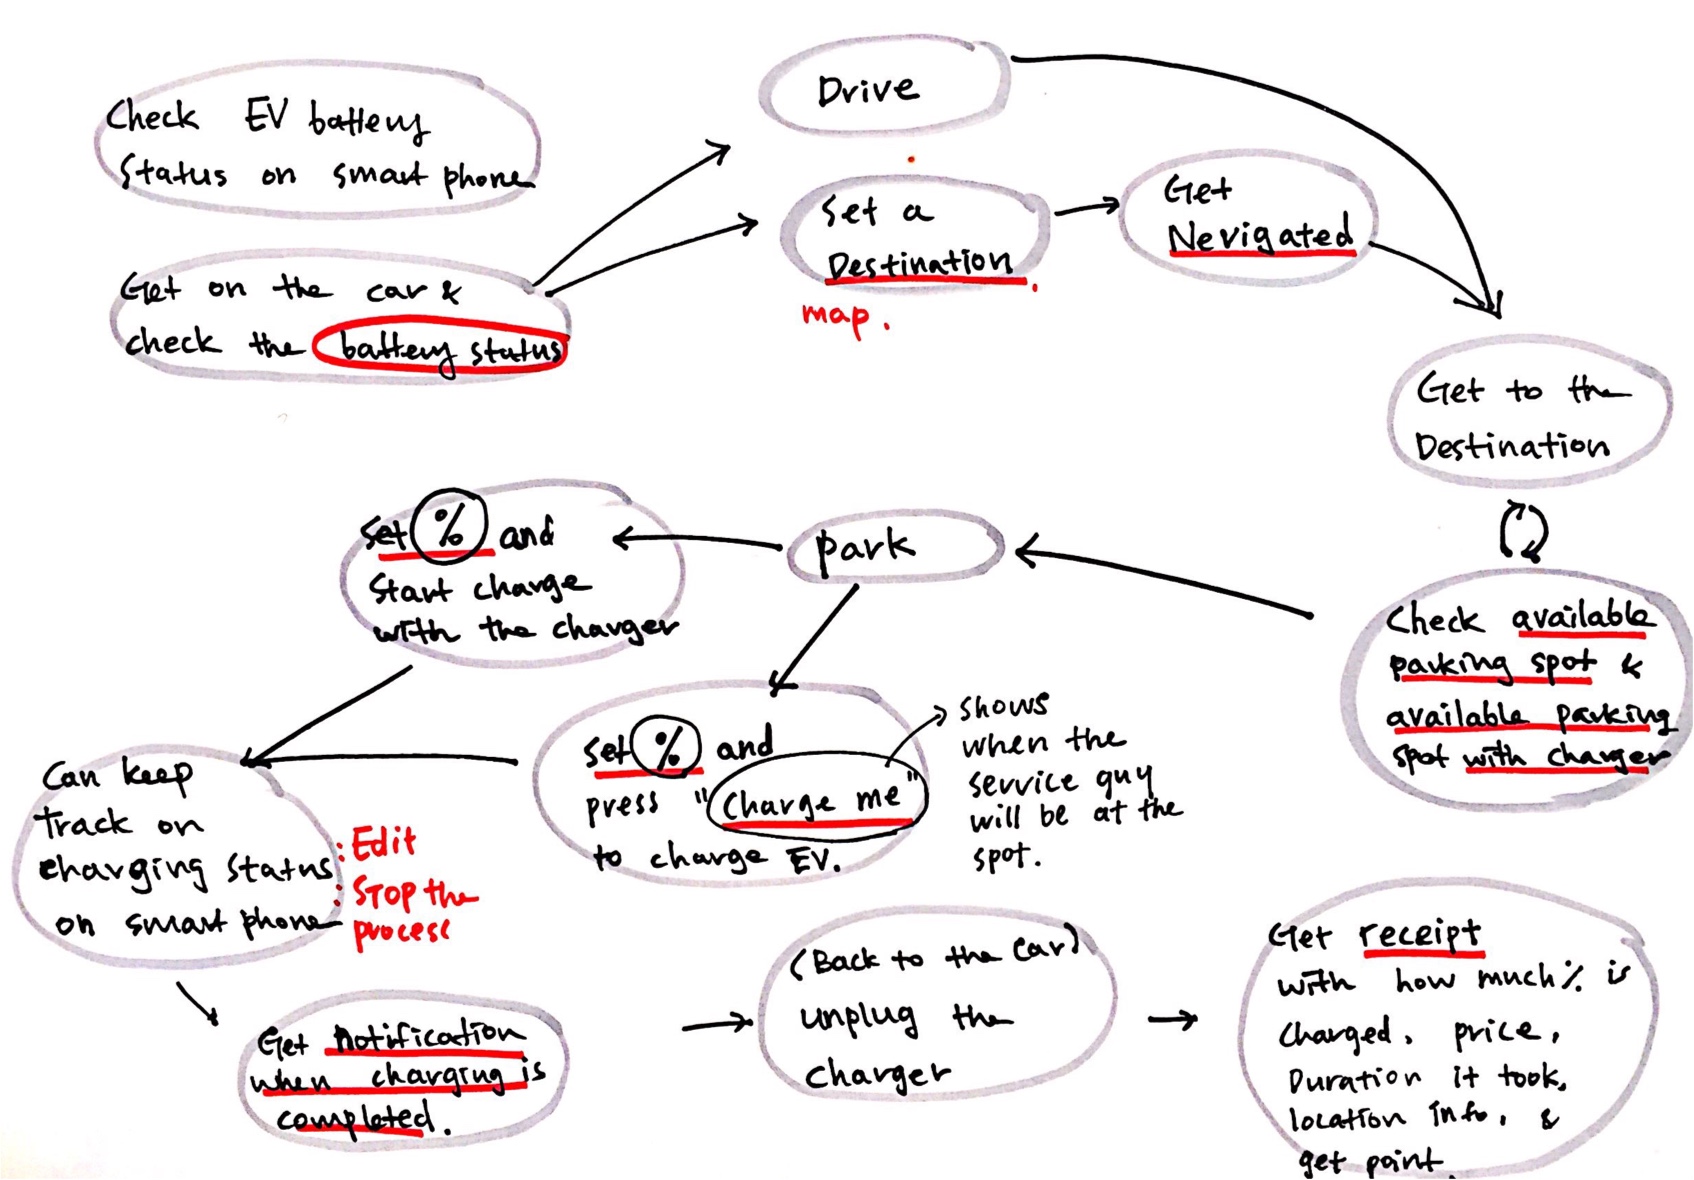 Check EV battery
Status on smart phone
Get on the car &
check the battery status
Drive
Set a
Destination
map.
Get
Nevigated
Get to the
Destination
Check available
parking spot &
available parking
spot with charger
park
Set % and
Start charge
with the charger
Set % and
press "Charge me"
to charge EV.
shows
when the
service guy
will be at the
spot.
Can keep
Track on
charging status
on smart phone
: Edit
: STOP the
process
Get notification
when charging is
completed.
(Back to the Car)
unplug the
charger
Get receipt
with how much % is
Charged, price,
Duration it took,
location info, &
get point.